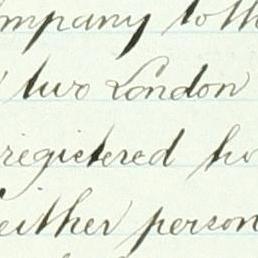 ompany to th
two London
registered ho
either person